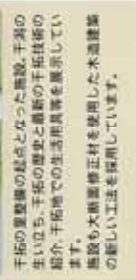 干拓の里整備の起点となった施設。干潟の
生い立ち、干拓の歴史と最新の干拓技術の
紹介、干拓地での生活用具等を展示してい
ます。
施設も大断面修正材を使用した木造建築
の新しい工法を採用しています。